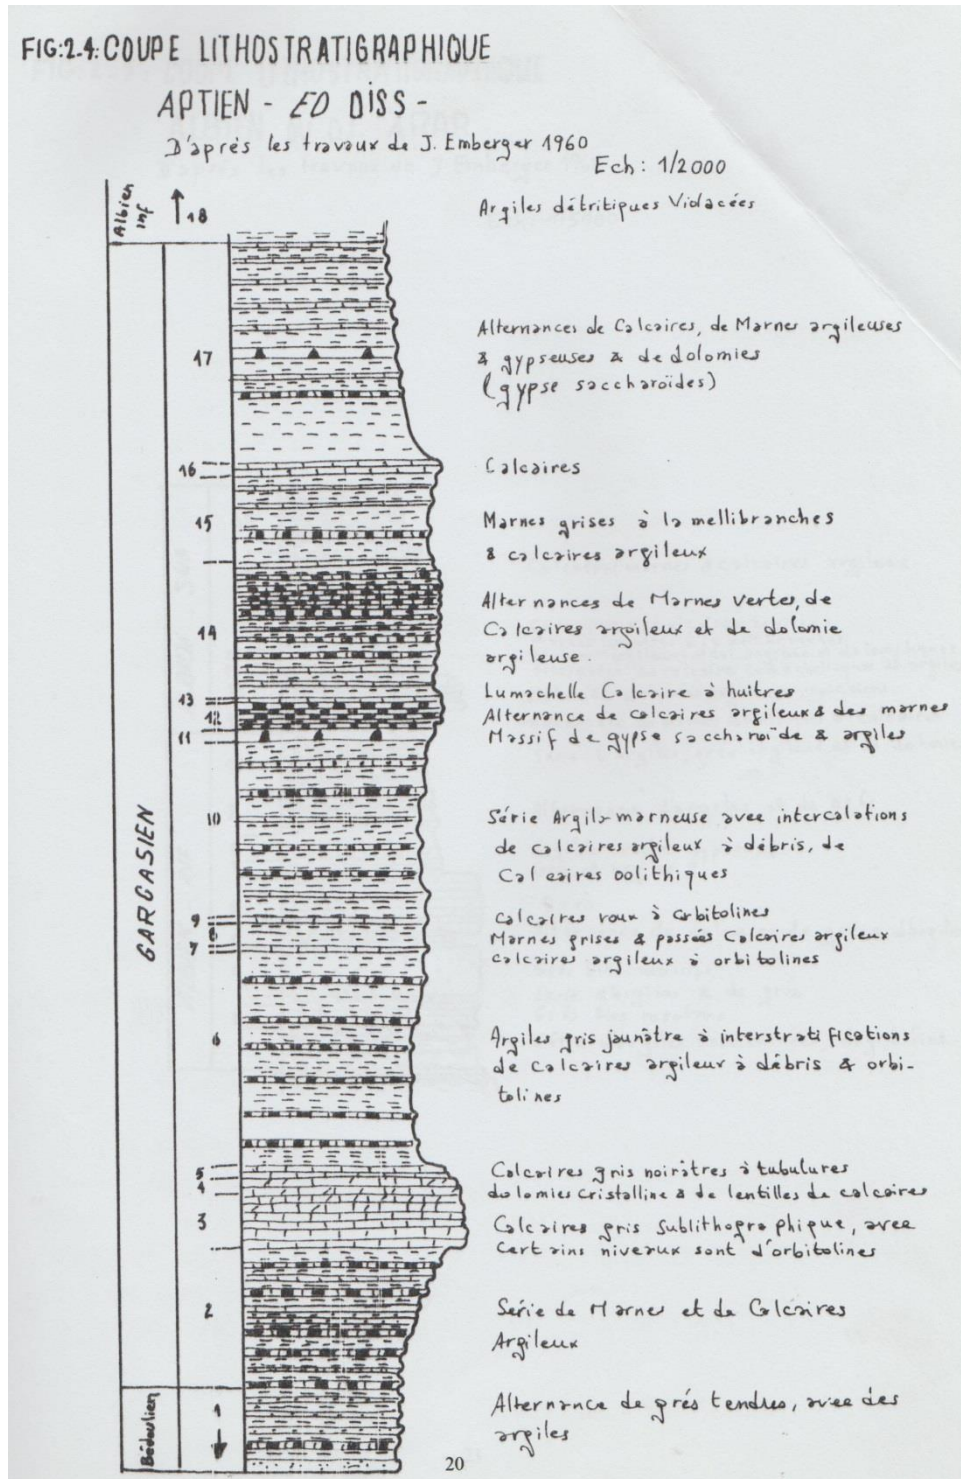 FIG:2.4: COUPE LITHOSTRATIGRAPHIQUE
APTIEN - ED DISS -
D'après les travaux de J. Emberger 1960
Ech: 1/2000
Albien inf
18
Argiles détritiques Violacées
GARGASIEN
17
Alternances de Calcaires, de Marnes argileuses
& gypseuses & de dolomies
(gypse saccharoïdes)
16
Calcaires
15
Marnes grises à la mellibranches
& calcaires argileux
14
Alternances de Marnes vertes, de
Calcaires argileux et de dolomie
argileuse.
13
Lumachelle Calcaire à huitres
12
Alternance de calcaires argileux & des marnes
11
Massif de gypse saccharoïde & argiles
10
Série Argilo-marneuse avec intercalations
de calcaires argileux à débris, de
Calcaires oolithiques
9
Calcaires roux à orbitolines
8
Marnes grises & passées Calcaires argileux
7
Calcaires argileux à orbitolines
6
Argiles gris jaunâtre à interstratifications
de Calcaires argileux à débris & orbi-
tolines
5
Calcaires gris noirâtres à tubulures
4
dolomies cristalline & de lentilles de calcaires
3
Calcaires gris sublithographique, avec
certains niveaux sont d'orbitolines
2
Série de Marnes et de Calcaires
Argileux
Bédoulien
1
Alternance de grés tendres, avec des
argiles
20